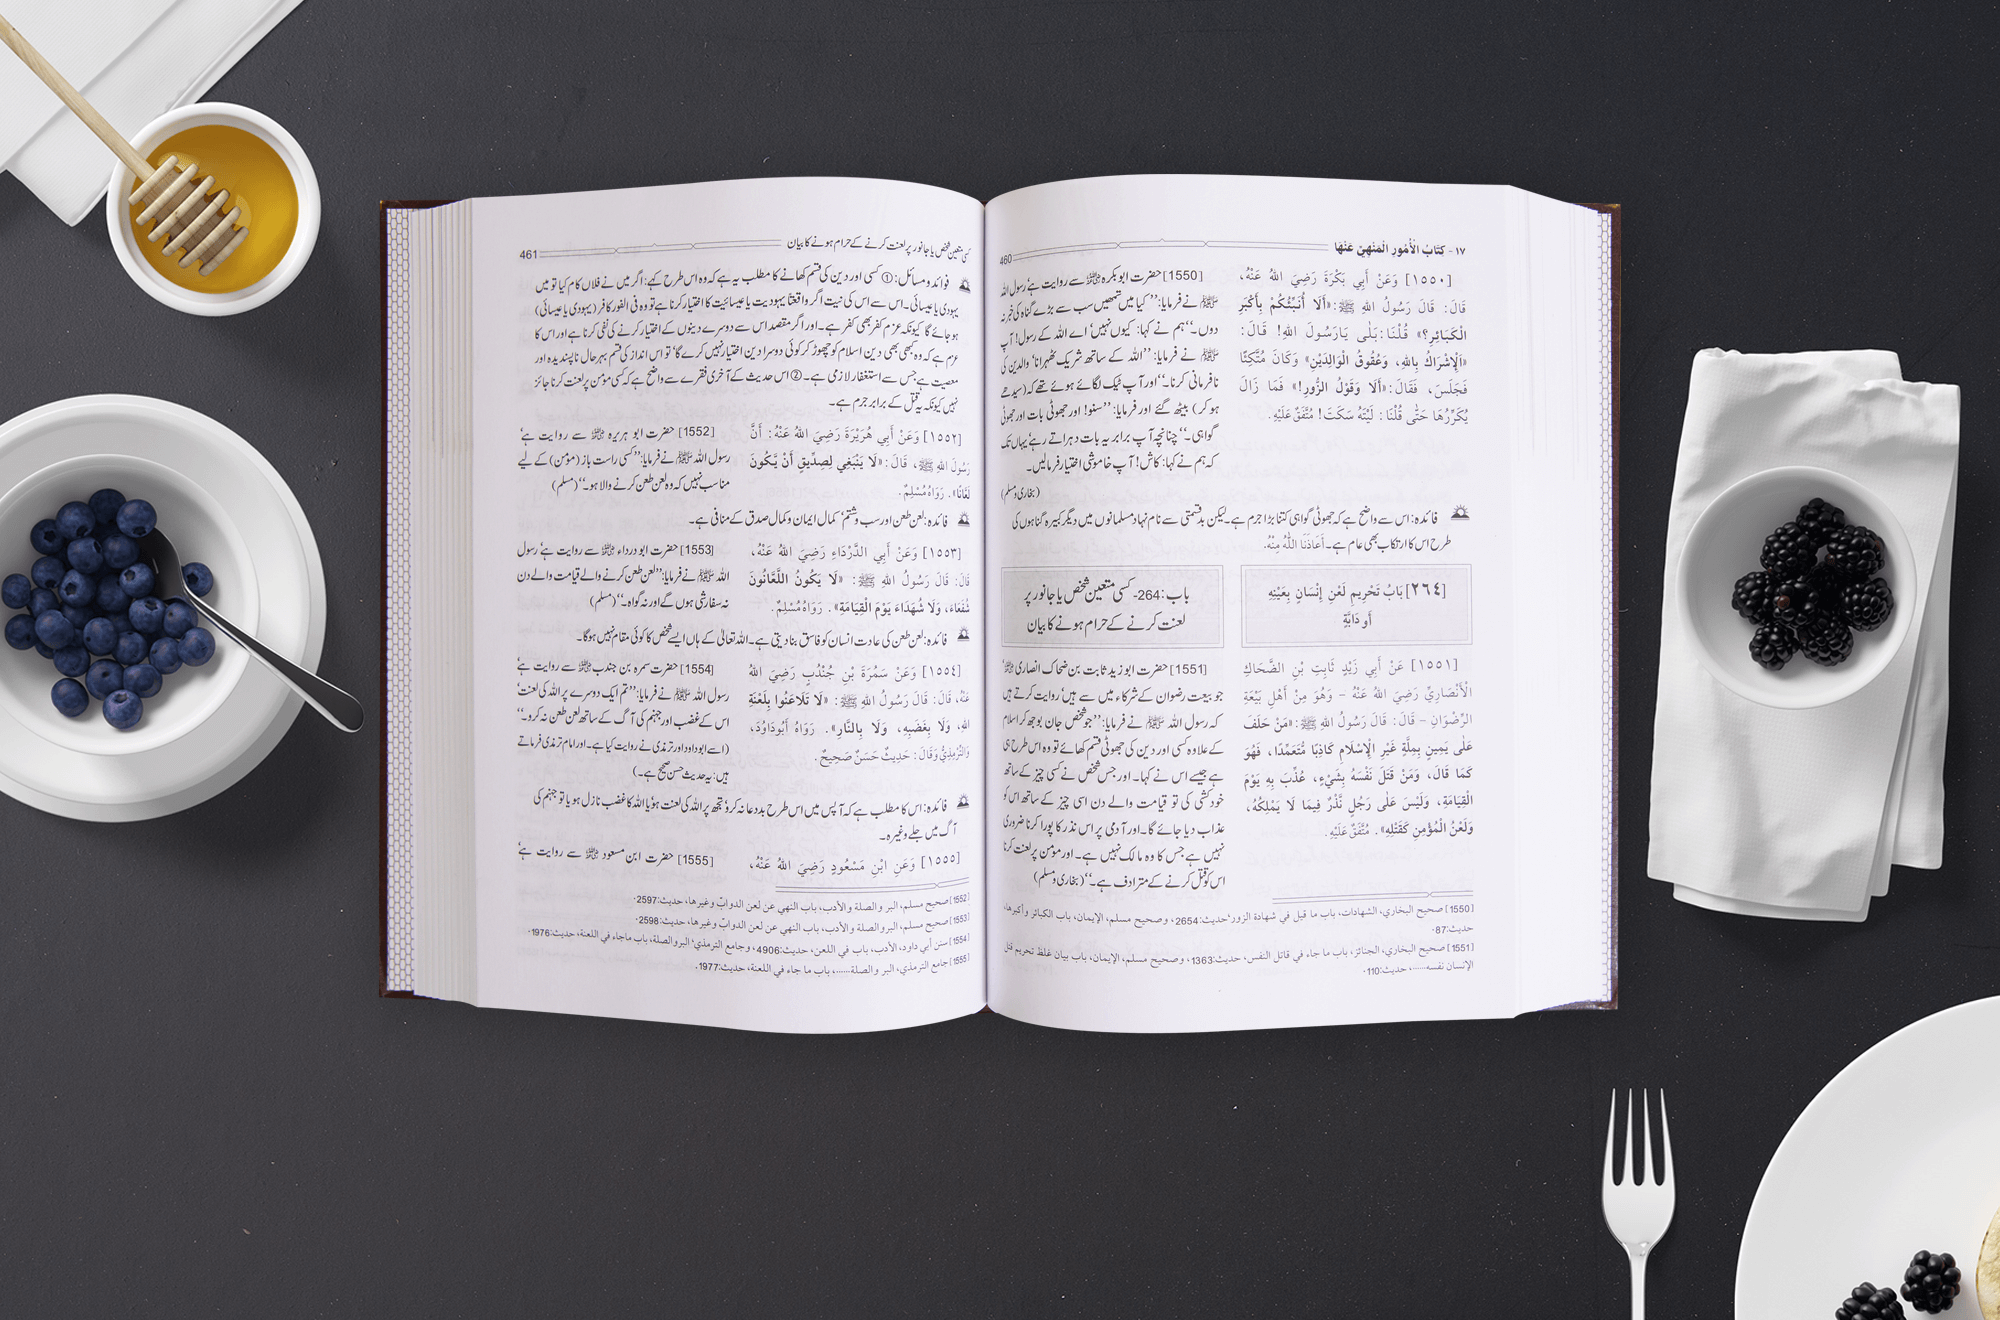 ١٧ - كِتَابُ الْأُمُورِ الْمَنْهِيِّ عَنْهَا
460
[١٥٥٠] وَعَنْ أَبِي بَكْرَةَ رَضِيَ اللهُ عَنْهُ،
قَالَ: قَالَ رَسُولُ اللهِ ﷺ: «أَلَا أُنَبِّئُكُمْ بِأَكْبَرِ
الْكَبَائِرِ؟» قُلْنَا: بَلَى يَارَسُولَ اللهِ! قَالَ:
«اَلْإِشْرَاكُ بِاللهِ، وَعُقُوقُ الْوَالِدَيْنِ» وَكَانَ مُتَّكِئًا
فَجَلَسَ، فَقَالَ: «أَلَا وَقَوْلُ الزُّورِ!» فَمَا زَالَ
يُكَرِّرُهَا حَتَّى قُلْنَا: لَيْتَهُ سَكَتَ! مُتَّفَقٌ عَلَيْهِ.
[1550] حضرت ابوبکرہ ؓ سے روایت ہے، رسول اللہ
ﷺ نے فرمایا: ’’کیا میں تمھیں سب سے بڑے گناہ کی خبر نہ
دوں۔‘‘ ہم نے کہا: کیوں نہیں، اے اللہ کے رسول! آپ
ﷺ نے فرمایا: ’’اللہ کے ساتھ شریک ٹھہرانا، والدین کی
نافرمانی کرنا۔‘‘ اور آپ ٹیک لگائے ہوئے تھے کہ (سیدھے
ہو کر) بیٹھ گئے اور فرمایا: ’’سنو! اور جھوٹی بات اور جھوٹی
گواہی۔‘‘ چنانچہ آپ برابر یہ بات دہراتے رہے، یہاں تک
کہ ہم نے کہا: کاش! آپ خاموشی اختیار فرمالیں۔
(بخاری ومسلم)
فائدہ: اس سے واضح ہے کہ جھوٹی گواہی کتنا بڑا جرم ہے۔ لیکن بدقسمتی سے نام نہاد مسلمانوں میں دیگر کبیرہ گناہوں کی
طرح اس کا ارتکاب بھی عام ہے۔ أَعَاذَنَا اللهُ مِنْهُ.
[٢٦٤] بَابُ تَحْرِيمِ لَعْنِ إِنْسَانٍ بِعَيْنِهِ
أَوْ دَابَّةٍ
باب: 264- کسی متعین شخص یا جانور پر
لعنت کرنے کے حرام ہونے کا بیان
[١٥٥١] عَنْ أَبِي زَيْدٍ ثَابِتِ بْنِ الضَّحَّاكِ
الْأَنْصَارِيِّ رَضِيَ اللهُ عَنْهُ - وَهُوَ مِنْ أَهْلِ بَيْعَةِ
الرِّضْوَانِ - قَالَ: قَالَ رَسُولُ اللهِ ﷺ: «مَنْ حَلَفَ
عَلَى يَمِينٍ بِمِلَّةٍ غَيْرِ الْإِسْلَامِ كَاذِبًا مُتَعَمِّدًا، فَهُوَ
كَمَا قَالَ، وَمَنْ قَتَلَ نَفْسَهُ بِشَيْءٍ، عُذِّبَ بِهِ يَوْمَ
الْقِيَامَةِ، وَلَيْسَ عَلَى رَجُلٍ نَذْرٌ فِيمَا لَا يَمْلِكُهُ،
وَلَعْنُ الْمُؤْمِنِ كَقَتْلِهِ». مُتَّفَقٌ عَلَيْهِ.
[1551] حضرت ابو زید ثابت بن ضحاک انصاری ؓ
جو بیعت رضوان کے شرکاء میں سے ہیں، روایت کرتے ہیں
کہ رسول اللہ ﷺ نے فرمایا: ’’جو شخص جان بوجھ کر اسلام
کے علاوہ کسی اور دین کی جھوٹی قسم کھائے تو وہ اس طرح ہی
ہے جیسے اس نے کہا۔ اور جس شخص نے کسی چیز کے ساتھ
خودکشی کی تو قیامت والے دن اسی چیز کے ساتھ اس کو
عذاب دیا جائے گا۔ اور آدمی پر اس نذر کا پورا کرنا ضروری
نہیں ہے جس کا وہ مالک نہیں ہے۔ اور مومن پر لعنت کرنا
اس کو قتل کرنے کے مترادف ہے۔‘‘ (بخاری ومسلم)
[1550] صحيح البخاري، الشهادات، باب ما قيل في شهادة الزور، حديث:2654، وصحيح مسلم، الإيمان، باب الكبائر وأكبرها،
حديث:87.
[1551] صحيح البخاري، الجنائز، باب ما جاء في قاتل النفس، حديث:1363، وصحيح مسلم، الإيمان، باب بيان غلظ تحريم قتل
الإنسان نفسه......، حديث:110.
کسی متعین شخص یا جانور پر لعنت کرنے کے حرام ہونے کا بیان
461
فوائد و مسائل: ① کسی اور دین کی قسم کھانے کا مطلب یہ ہے کہ وہ اس طرح کہے: اگر میں نے فلاں کام کیا تو میں
یہودی یا عیسائی۔ اس سے اس کی نیت اگر واقعتاً یہودیت یا عیسائیت کا اختیار کرنا ہے تو وہ فی الفور کافر (یہودی یا عیسائی)
ہو جائے گا کیونکہ عزم کفر بھی کفر ہے۔ اور اگر مقصد اس سے دوسرے دینوں کے اختیار کرنے کی نفی کرنا ہے اور اس کا
عزم ہے کہ وہ کبھی بھی دین اسلام کو چھوڑ کر کوئی دوسرا دین اختیار نہیں کرے گا، تو اس انداز کی قسم بہر حال ناپسندیدہ اور
معصیت ہے جس سے استغفار لازمی ہے۔ ② اس حدیث کے آخری فقرے سے واضح ہے کہ کسی مومن پر لعنت کرنا جائز
نہیں کیونکہ یہ قتل کے برابر جرم ہے۔
[١٥٥٢] وَعَنْ أَبِي هُرَيْرَةَ رَضِيَ اللهُ عَنْهُ: أَنَّ
رَسُولَ اللهِ ﷺ، قَالَ: «لَا يَنْبَغِي لِصِدِّيقٍ أَنْ يَكُونَ
لَعَّانًا». رَوَاهُ مُسْلِمٌ.
[1552] حضرت ابو ہریرہ ؓ سے روایت ہے،
رسول اللہ ﷺ نے فرمایا: ’’کسی راست باز (مومن) کے لیے
مناسب نہیں کہ وہ لعن طعن کرنے والا ہو۔‘‘ (مسلم)
فائدہ: لعن طعن اور سب و شتم، کمال ایمان و کمال صدق کے منافی ہے۔
[١٥٥٣] وَعَنْ أَبِي الدَّرْدَاءِ رَضِيَ اللهُ عَنْهُ،
قَالَ: قَالَ رَسُولُ اللهِ ﷺ: «لَا يَكُونُ اللَّعَّانُونَ
شُفَعَاءَ، وَلَا شُهَدَاءَ يَوْمَ الْقِيَامَةِ». رَوَاهُ مُسْلِمٌ.
[1553] حضرت ابو درداء ؓ سے روایت ہے، رسول
اللہ ﷺ نے فرمایا: ’’لعن طعن کرنے والے قیامت والے دن
نہ سفارشی ہوں گے اور نہ گواہ۔‘‘ (مسلم)
فائدہ: لعن طعن کی عادت انسان کو فاسق بنا دیتی ہے۔ اللہ تعالیٰ کے ہاں ایسے شخص کا کوئی مقام نہیں ہوگا۔
[١٥٥٤] وَعَنْ سَمُرَةَ بْنِ جُنْدُبٍ رَضِيَ اللهُ
عَنْهُ، قَالَ: قَالَ رَسُولُ اللهِ ﷺ: «لَا تَلَاعَنُوا بِلَعْنَةِ
اللهِ، وَلَا بِغَضَبِهِ، وَلَا بِالنَّارِ». رَوَاهُ أَبُودَاوُدَ،
وَالتِّرْمِذِيُّ وَقَالَ: حَدِيثٌ حَسَنٌ صَحِيحٌ.
[1554] حضرت سمرہ بن جندب ؓ سے روایت ہے،
رسول اللہ ﷺ نے فرمایا: ’’تم ایک دوسرے پر اللہ کی لعنت،
اس کے غضب اور جہنم کی آگ کے ساتھ لعن طعن نہ کرو۔‘‘
(اسے ابوداود اور ترمذی نے روایت کیا ہے۔ اور امام ترمذی فرماتے
ہیں: یہ حدیث حسن صحیح ہے۔)
فائدہ: اس کا مطلب ہے کہ آپس میں اس طرح بددعا نہ کرو، تجھ پر اللہ کی لعنت ہو یا اللہ کا غضب نازل ہو یا تو جہنم کی
آگ میں جلے وغیرہ۔
[١٥٥٥] وَعَنِ ابْنِ مَسْعُودٍ رَضِيَ اللهُ عَنْهُ،
[1555] حضرت ابن مسعود ؓ سے روایت ہے،
[1552] صحيح مسلم، البر والصلة والأدب، باب النهي عن لعن الدوابّ وغيرها، حديث:2597.
[1553] صحيح مسلم، البر والصلة والأدب، باب النهي عن لعن الدوابّ وغيرها، حديث:2598.
[1554] سنن أبي داود، الأدب، باب في اللعن، حديث:4906، وجامع الترمذي، البر والصلة، باب ماجاء في اللعنة، حديث:1976.
[1555] جامع الترمذي، البر والصلة......، باب ما جاء في اللعنة، حديث:1977.